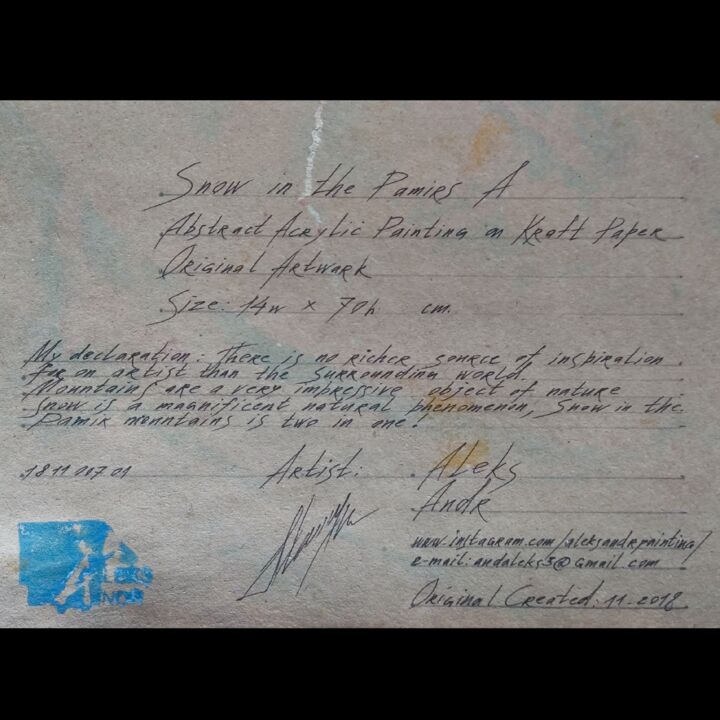 Snow in the Pamirs A
Abstract Acrylic Painting on Kraft Paper
Original Artwork
Size: 14w x 70h cm.
My declaration: There is no richer source of inspiration
for on artist than the surrounding world.
Mountains are a very impressive object of nature
Snow is a magnificent natural phenomenon, Snow in the
Pamir mountains is two in one!
1811 007 01
Artist: Aleks
Andr
www.instagram.com/aleksandrpainting/
e-mail: andaleks3@gmail.com
Original Created: 11-2018
ALEKS
ANDR